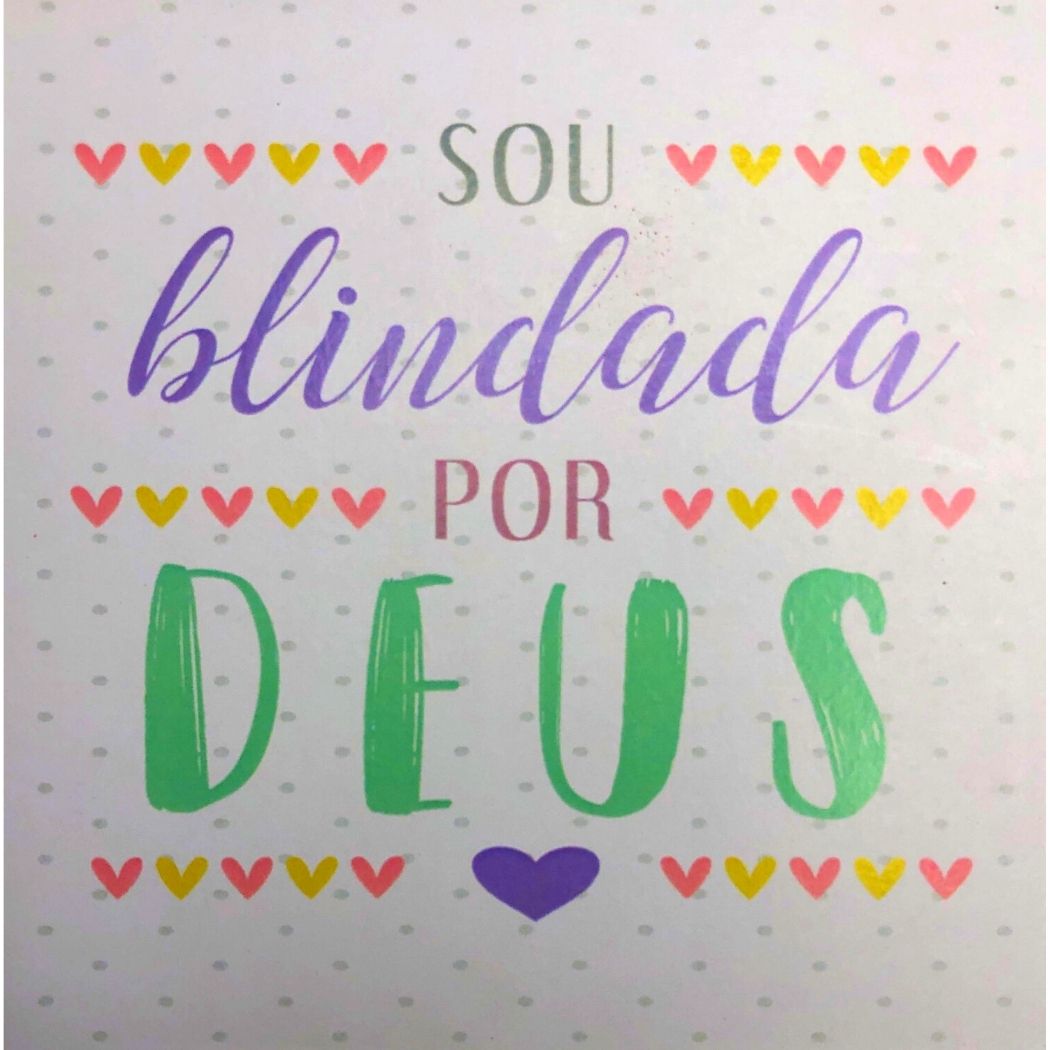 SOU
blindada
POR
DEUS